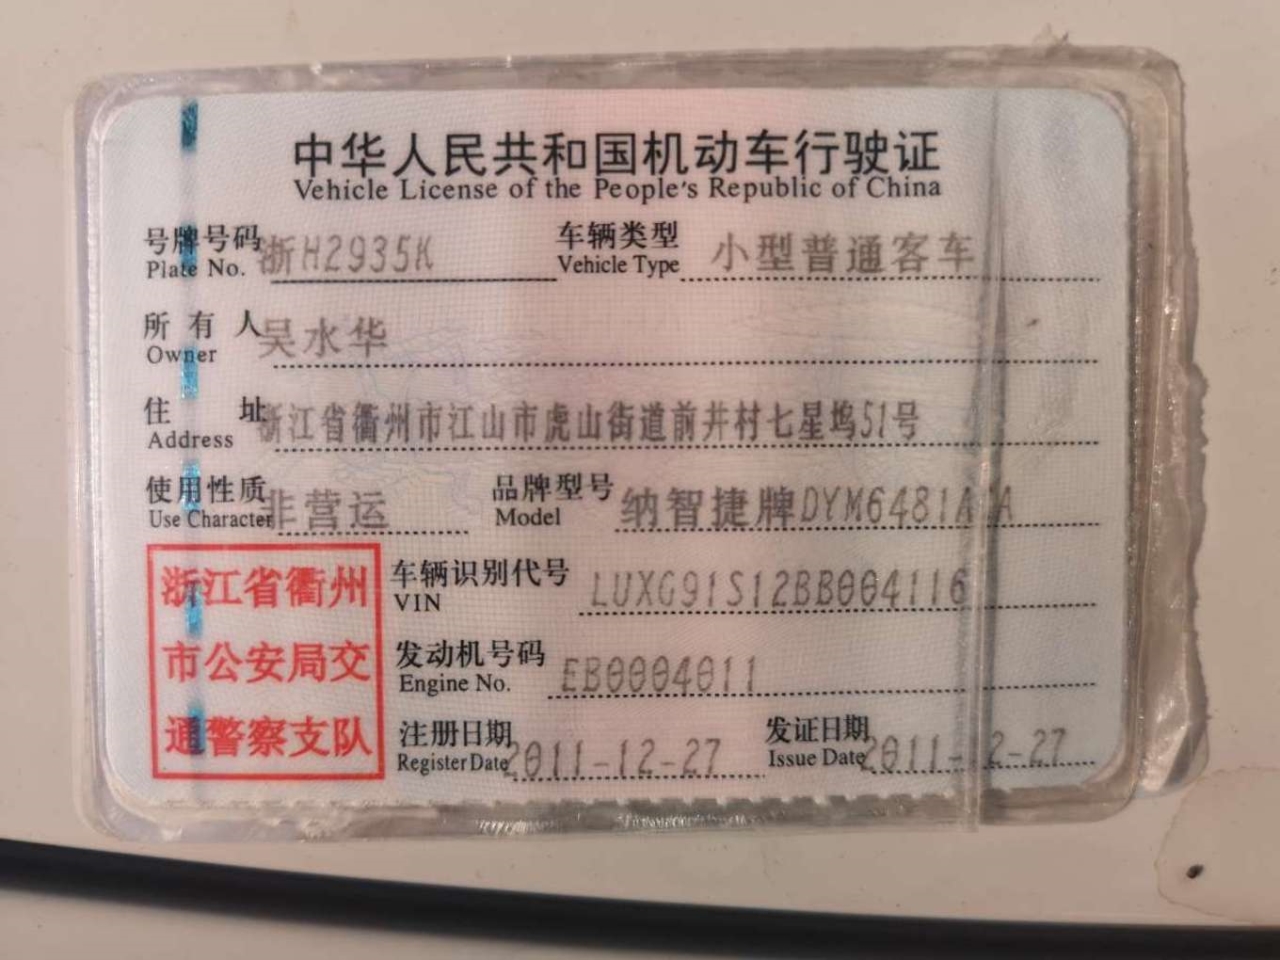 中华人民共和国机动车行驶证
Vehicle License of the People's Republic of China
号牌号码 浙H2935K 车辆类型 小型普通客车
Plate No. Vehicle Type
所有人 吴水华
Owner
住址 浙江省衢州市江山市虎山街道前井村七星坞51号
Address
使用性质 非营运 品牌型号 纳智捷牌DYM6481AAA
Use Character Model
浙江省衢州
市公安局交
通警察支队
车辆识别代号 LUXG91S12BB004116
VIN
发动机号码 EB0004011
Engine No.
注册日期 2011-12-27 发证日期 2011-12-27
Register Date Issue Date